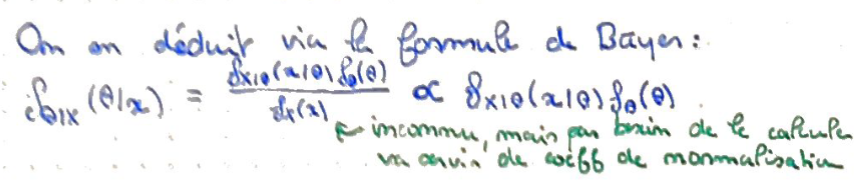 On en déduit via la formule de Bayes :
f_{Θ|X}(θ|x) = \frac{f_{X|Θ}(x|θ) f_Θ(θ)}{f_X(x)} ∝ f_{X|Θ}(x|θ) f_Θ(θ)
← inconnu, mais pas besoin de le calculer
va servir de coeff de normalisation